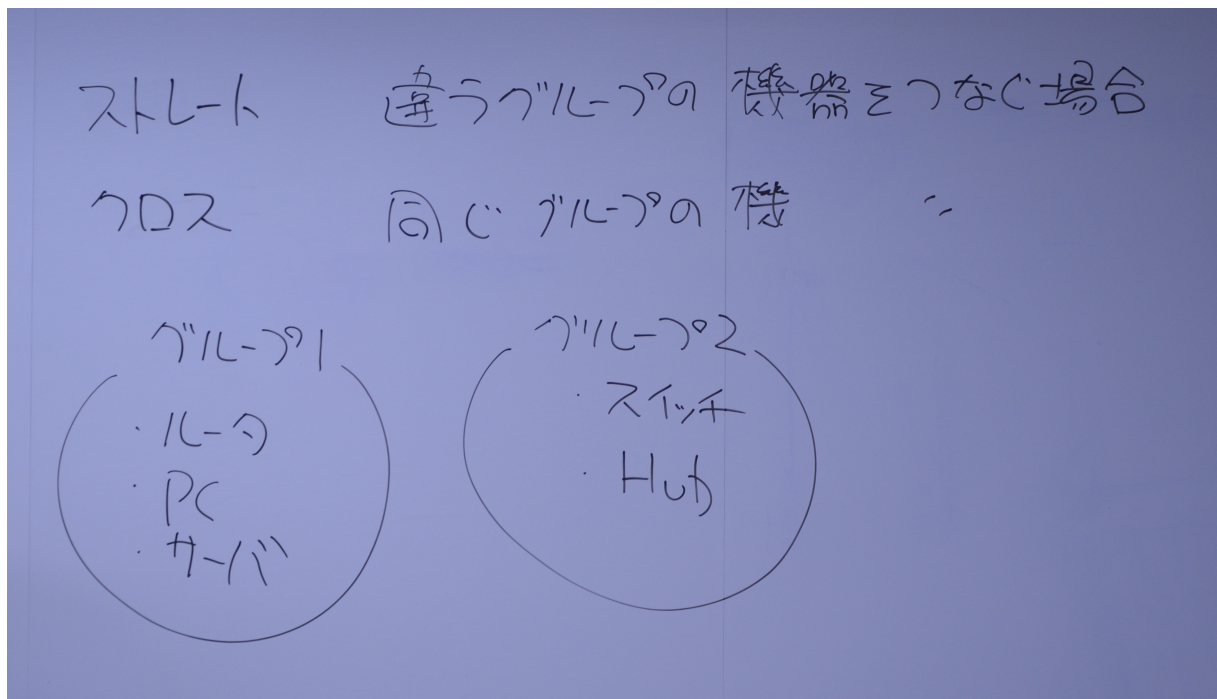 ストレート 違うグループの機器をつなぐ場合
クロス 同じグループの機 〃
グループ1
・ルータ
・PC
・サーバ
グループ2
・スイッチ
・Hub